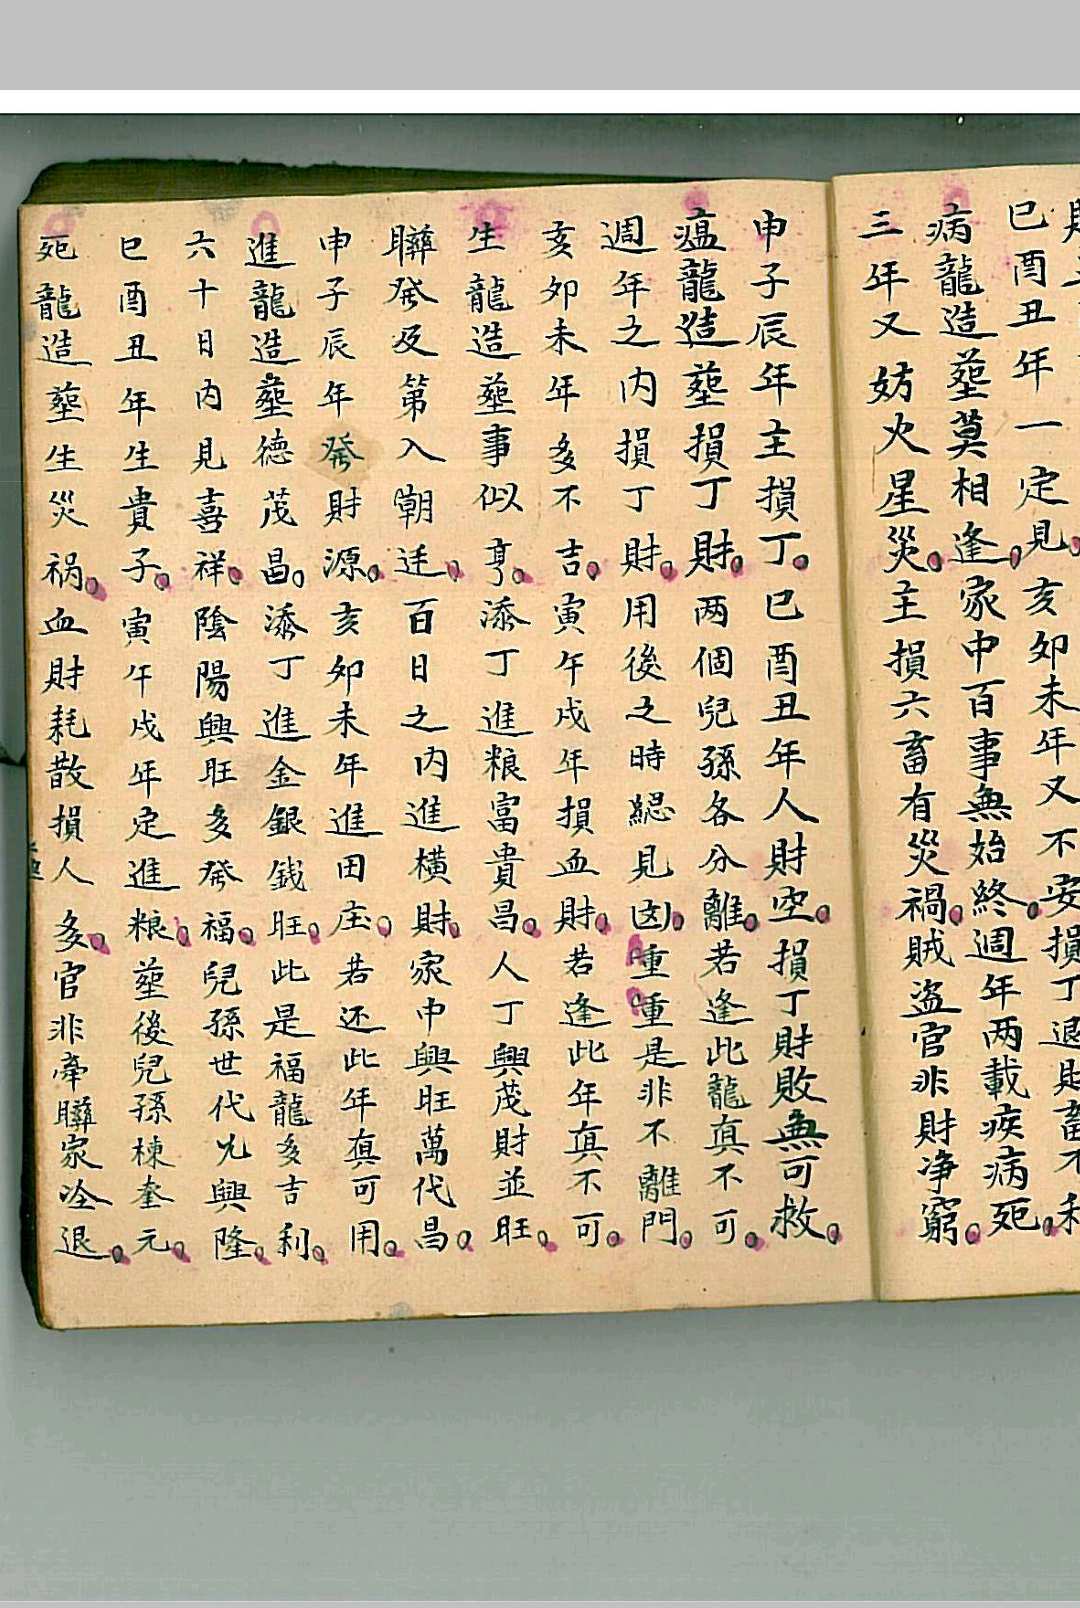 巳酉丑年一定見亥卯未年又不安損丁退財畜不利
病龍造塋莫相逢家中百事無始終週年两載疾病死
三年又妨火星災主損六畜有災禍賊盗官非財净窮
申子辰年主損丁巳酉丑年人財空損丁財敗無可救
瘟龍造塋損丁財两個兒孫各分離若逢此龍真不可
週年之内損丁財用後之時緫見凶重重是非不離門
亥卯未年多不吉寅午戌年損血財若逢此年真不可
生龍造塋事似亨添丁進粮富貴昌人丁興茂財並旺
聯發及第入朝廷百日之内進横財家中興旺萬代昌
申子辰年發財源亥卯未年進田庄若还此年真可用
進龍造塋德茂昌添丁進金銀銭旺此是福龍多吉利
六十日内見喜祥陰陽興旺多發福兒孫世代光興隆
巳酉丑年生貴子寅午戌年定進粮塋後兒孫棟奎元
死龍造塋生災祸血財耗散損人多官非牽聯家冷退